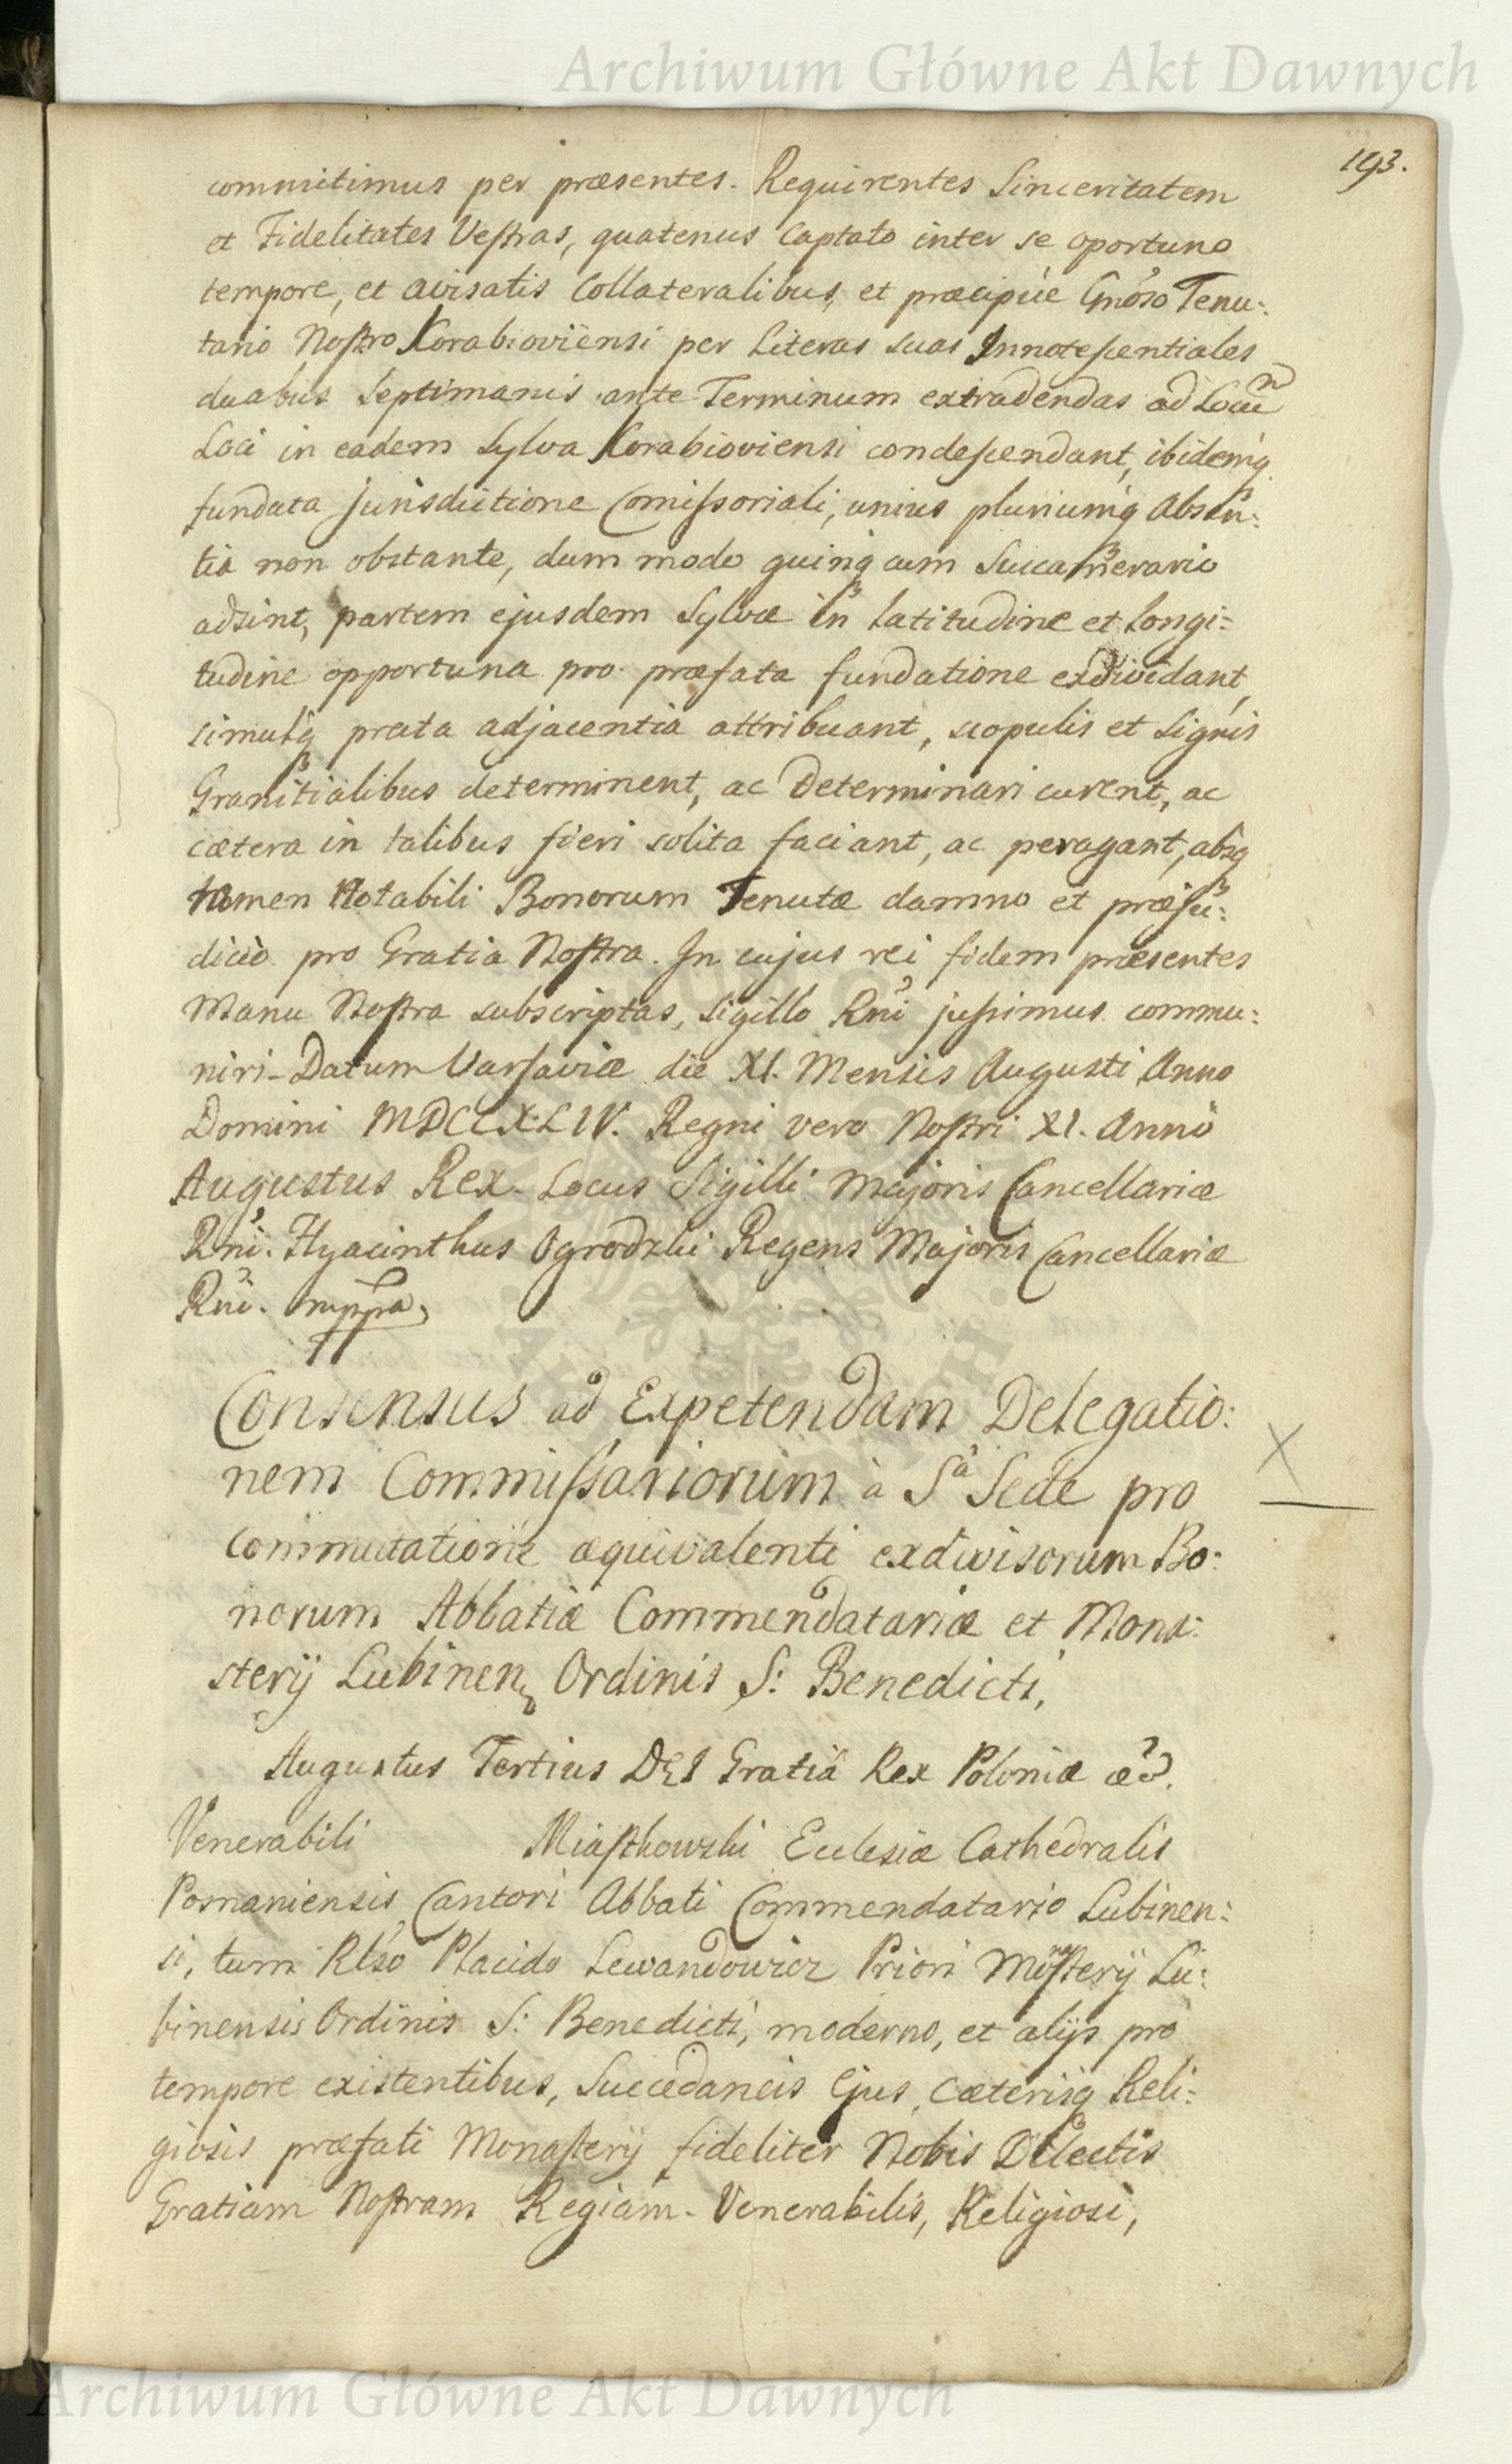 Archiwum Główne Akt Dawnych
193.
commitimus per præsentes. Requirentes Sinceritatem
et Fidelitates Vestras, quatenus Captato inter se oportuno
tempore, et avisatis Collateralibus, et præcipuè Gnoso Tenu:
tario Nostro Korabioviensi per Literas suas Innotescentiales
duabus Septimanis ante Terminum extradendas ad Locum
Loci in eadem Sylva Korabioviensi condescendant, ibidemq
fundata Jurisdictione Comissoriali, unius pluriumq Absen:
tia non obstante, dum modo quinq cum Succamerario
adsint, partem ejusdem Sylvæ in latitudine et longi:
tudine opportuna pro præfata fundatione exdividant,
simulq prata adjacentia attribuant, scopulis et signis
Granitialibus determinent, ac determinari curent, ac
cætera in talibus fieri solita faciant, ac peragant, absq
tamen Notabili Bonorum Tenutæ damno et præju:
dicio pro Gratia Nostra. In cujus rei fidem præsentes
Manu Nostra subscriptas, Sigillo Rni jussimus commu:
niri. Datum Varsaviæ die XI. Mensis Augusti Anno
Domini MDCCXLIV. Regni vero Nostri XI. Anno
Augustus Rex. Locus Sigilli Majoris Cancellariæ
Rni. Hyacinthus Ogrodzki Regens Majoris Cancellariæ
Rni. mppa.
Consensus ad Expetendam Delegatio:
nem Commissariorum à Sa Sede pro
commutatione æquivalenti exdivisorum Bo:
norum Abbatiæ Commendatariæ et Mona:
sterij Lubinen Ordinis S: Benedicti,
Augustus Tertius DEI Gratiâ Rex Poloniæ &c.
Venerabili Miastkowski Eclesiæ Cathedralis
Posnaniensis Cantori Abbati Commendatario Lubinen:
si, tum Rlso Placido Lewandowicz Priori Mönasterij Lu:
binensis Ordinis S: Benedicti, moderno, et alijs pro
tempore existentibus, Succedaneis Ejus, Cæterisq Reli:
giosis præfati Monasterij fideliter Nobis Dilectis
Gratiam Nostram Regiam. Venerabilis, Religiosi,
Archiwum Główne Akt Dawnych